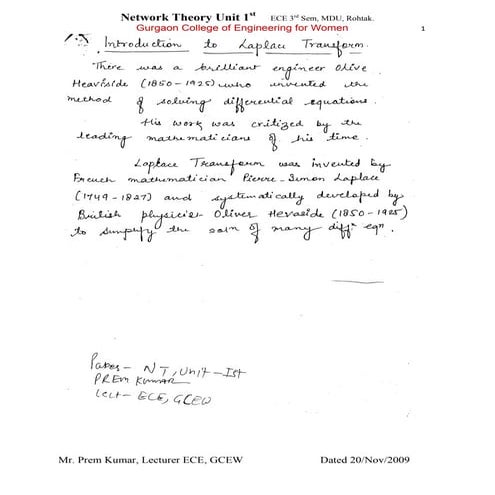 Network Theory Unit 1st ECE 3rd Sem, MDU, Rohtak.
Gurgaon College of Engineering for Women 1
Introduction to Laplace Transform.
There was a brilliant engineer Olive
Heaviside (1850-1925) who invented the
method of solving differential equations.
His work was critized by the
leading mathematicians of his time.
Laplace Transform was invented by
French mathematician Pierre-Simon Laplace
(1749-1827) and systematically developed by
British physicist Oliver Hevaside (1850-1925)
to simplify the soln of many diffn eqn.
Paper- NT, Unit-Ist
PREM KUMAR
Lect- ECE, GCEW
Mr. Prem Kumar, Lecturer ECE, GCEW Dated 20/Nov/2009